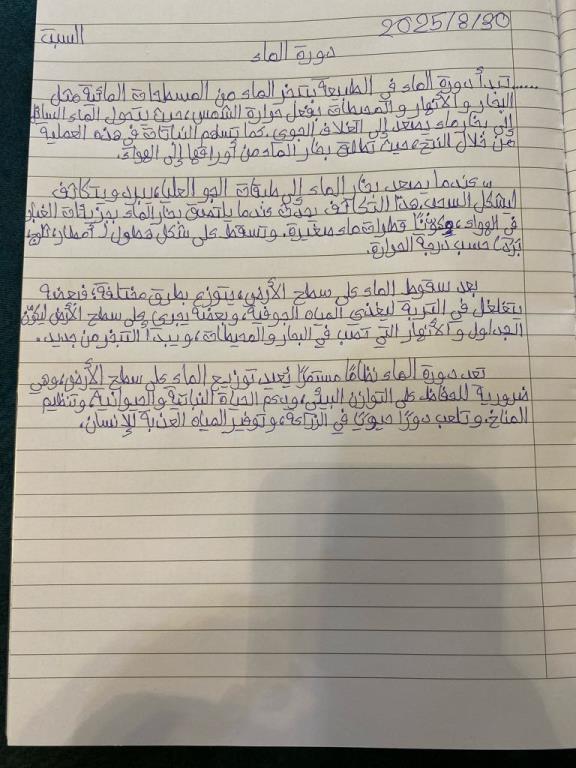 2025/8/30 السبت
دورة الماء
......تبدأ دورة الماء في الطبيعة بتبخر الماء من المسطحات المائية مثل
البحار والأنهار والمحيطات بفعل حرارة الشمس، حيث يتحول الماء السائل
إلى بخار ماء يصعد إلى الغلاف الجوي. كما تسهم النباتات في هذه العملية
من خلال النتح، حيث تطلق بخار الماء من أوراقها إلى الهواء.
عندما يصعد بخار الماء إلى طبقات الجو العليا، يبرد ويتكاثف
ليشكل السحب. هذا التكاثف يحدث عندما يلتصق بخار الماء بجزيئات الغبار
في الهواء، مكونًا قطرات ماء صغيرة. وتسقط على شكل هطول أمطار، ثلوج
بردًا حسب درجة الحرارة.
بعد سقوط الماء على سطح الأرض، يتوزع بطرق مختلفة، فبعضه
يتغلغل في التربة ليغذي المياه الجوفية، وبعضه يجري على سطح الأرض ليكوّن
الجداول والأنهار التي تصب في البحار والمحيطات، ويبدأ التبخر من جديد.
تعد دورة الماء نظامًا مستمرًا يُعيد توزيع الماء على سطح الأرض، وهي
ضرورية للحفاظ على التوازن البيئي، ودعم الحياة النباتية والحيوانية، وتنظيم
المناخ. وتلعب دورًا حيويًا في الزراعة، وتوفير المياه العذبة للإنسان.